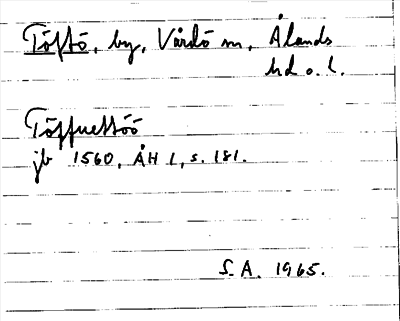 Töftö, by, Vårdö sn, Ålands
hd o. l.
Töffuettöö
jb 1560, ÅH 1, s. 181.
S.A. 1965.